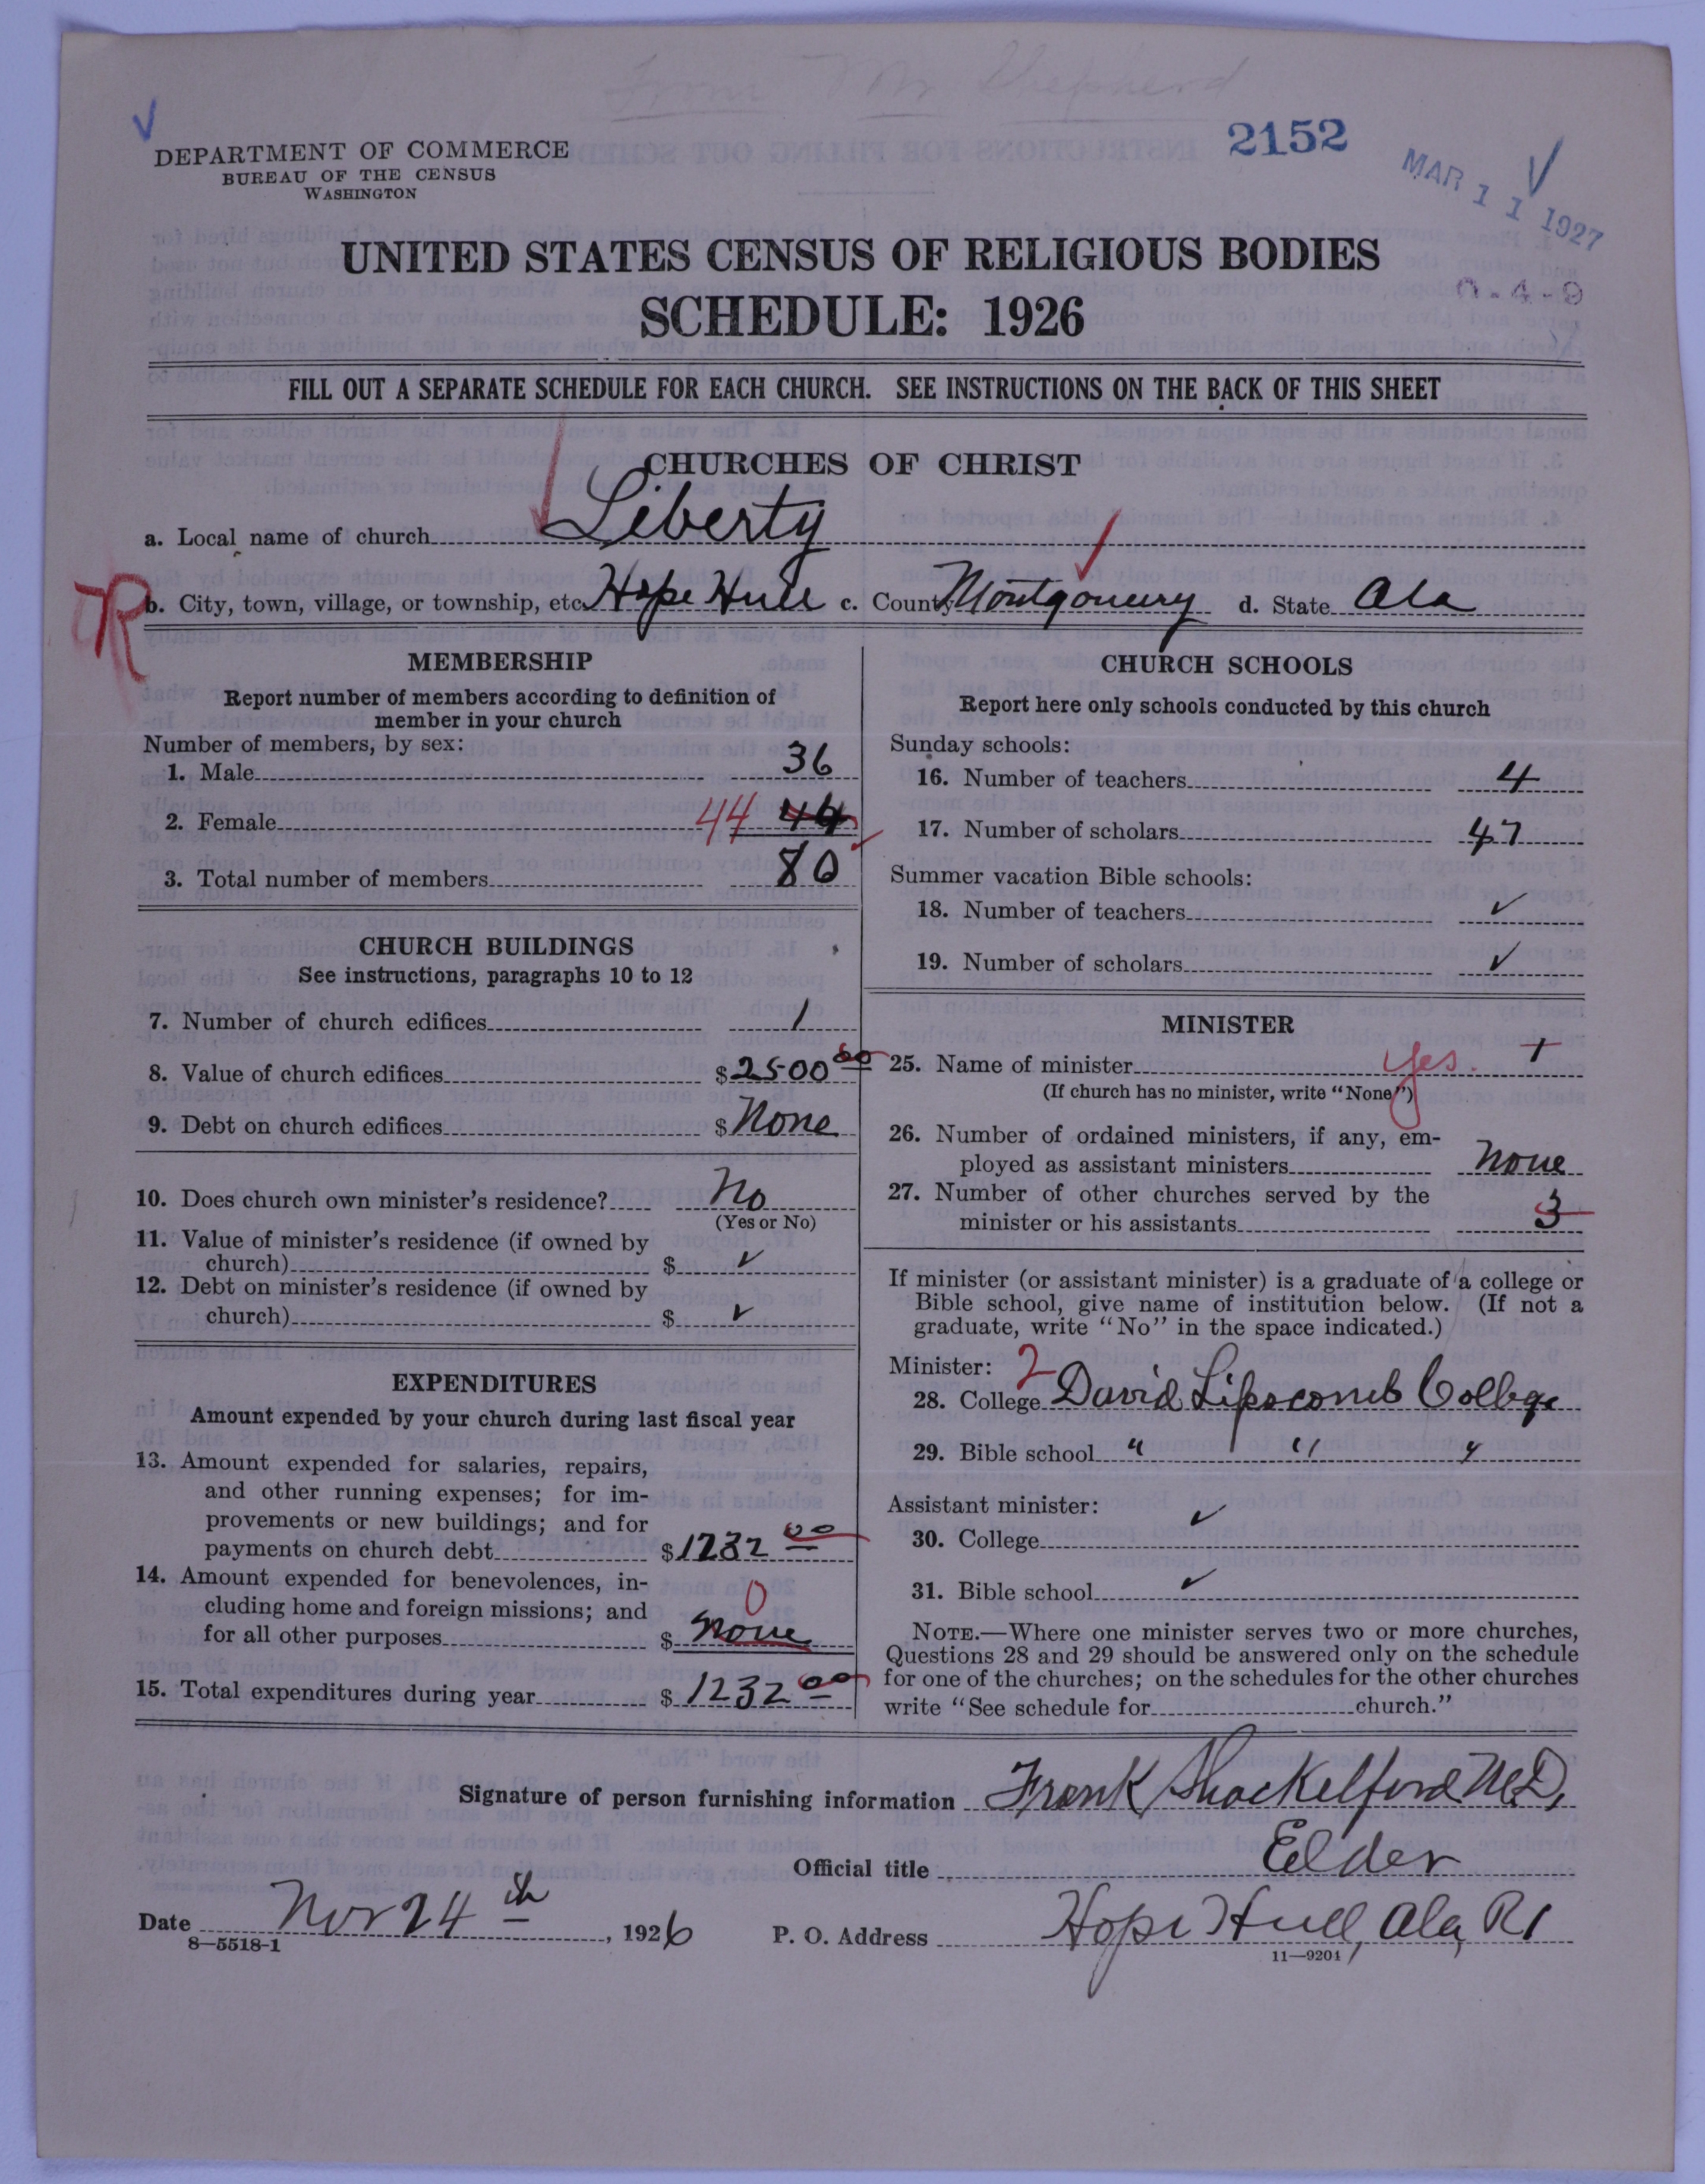 From Mr Shepherd
DEPARTMENT OF COMMERCE
BUREAU OF THE CENSUS
WASHINGTON
2152
MAR 11 1927
0-4-9
UNITED STATES CENSUS OF RELIGIOUS BODIES
SCHEDULE: 1926
FILL OUT A SEPARATE SCHEDULE FOR EACH CHURCH. SEE INSTRUCTIONS ON THE BACK OF THIS SHEET
CHURCHES OF CHRIST
a. Local name of church Liberty
R
b. City, town, village, or township, etc. Hope Hull c. County Montgomery d. State Ala
MEMBERSHIP
Report number of members according to definition of
member in your church
Number of members, by sex:
1. Male 36
2. Female 44 44
3. Total number of members 80
CHURCH BUILDINGS
See instructions, paragraphs 10 to 12
7. Number of church edifices 1
8. Value of church edifices $2500 00
9. Debt on church edifices $ None
10. Does church own minister's residence? No
(Yes or No)
11. Value of minister's residence (if owned by
church) $ ✓
12. Debt on minister's residence (if owned by
church) $ ✓
EXPENDITURES
Amount expended by your church during last fiscal year
13. Amount expended for salaries, repairs,
and other running expenses; for im-
provements or new buildings; and for
payments on church debt $1232 00
14. Amount expended for benevolences, in-
cluding home and foreign missions; and
for all other purposes $ none 0
15. Total expenditures during year $ 1232 00
CHURCH SCHOOLS
Report here only schools conducted by this church
Sunday schools:
16. Number of teachers 4
17. Number of scholars 47
Summer vacation Bible schools:
18. Number of teachers ✓
19. Number of scholars ✓
MINISTER
25. Name of minister yes. 1
(If church has no minister, write "None")
26. Number of ordained ministers, if any, em-
ployed as assistant ministers none
27. Number of other churches served by the
minister or his assistants 3
If minister (or assistant minister) is a graduate of a college or
Bible school, give name of institution below. (If not a
graduate, write "No" in the space indicated.)
Minister: 2
28. College David Lipscomb College
29. Bible school " " "
Assistant minister:
30. College ✓
31. Bible school ✓
NOTE.—Where one minister serves two or more churches,
Questions 28 and 29 should be answered only on the schedule
for one of the churches; on the schedules for the other churches
write "See schedule for church."
Signature of person furnishing information Frank Shackelford M.D,
Official title Elder
Date Nov 24th, 1926 P. O. Address Hope Hull, Ala, R1
8—5518-1
11—9204